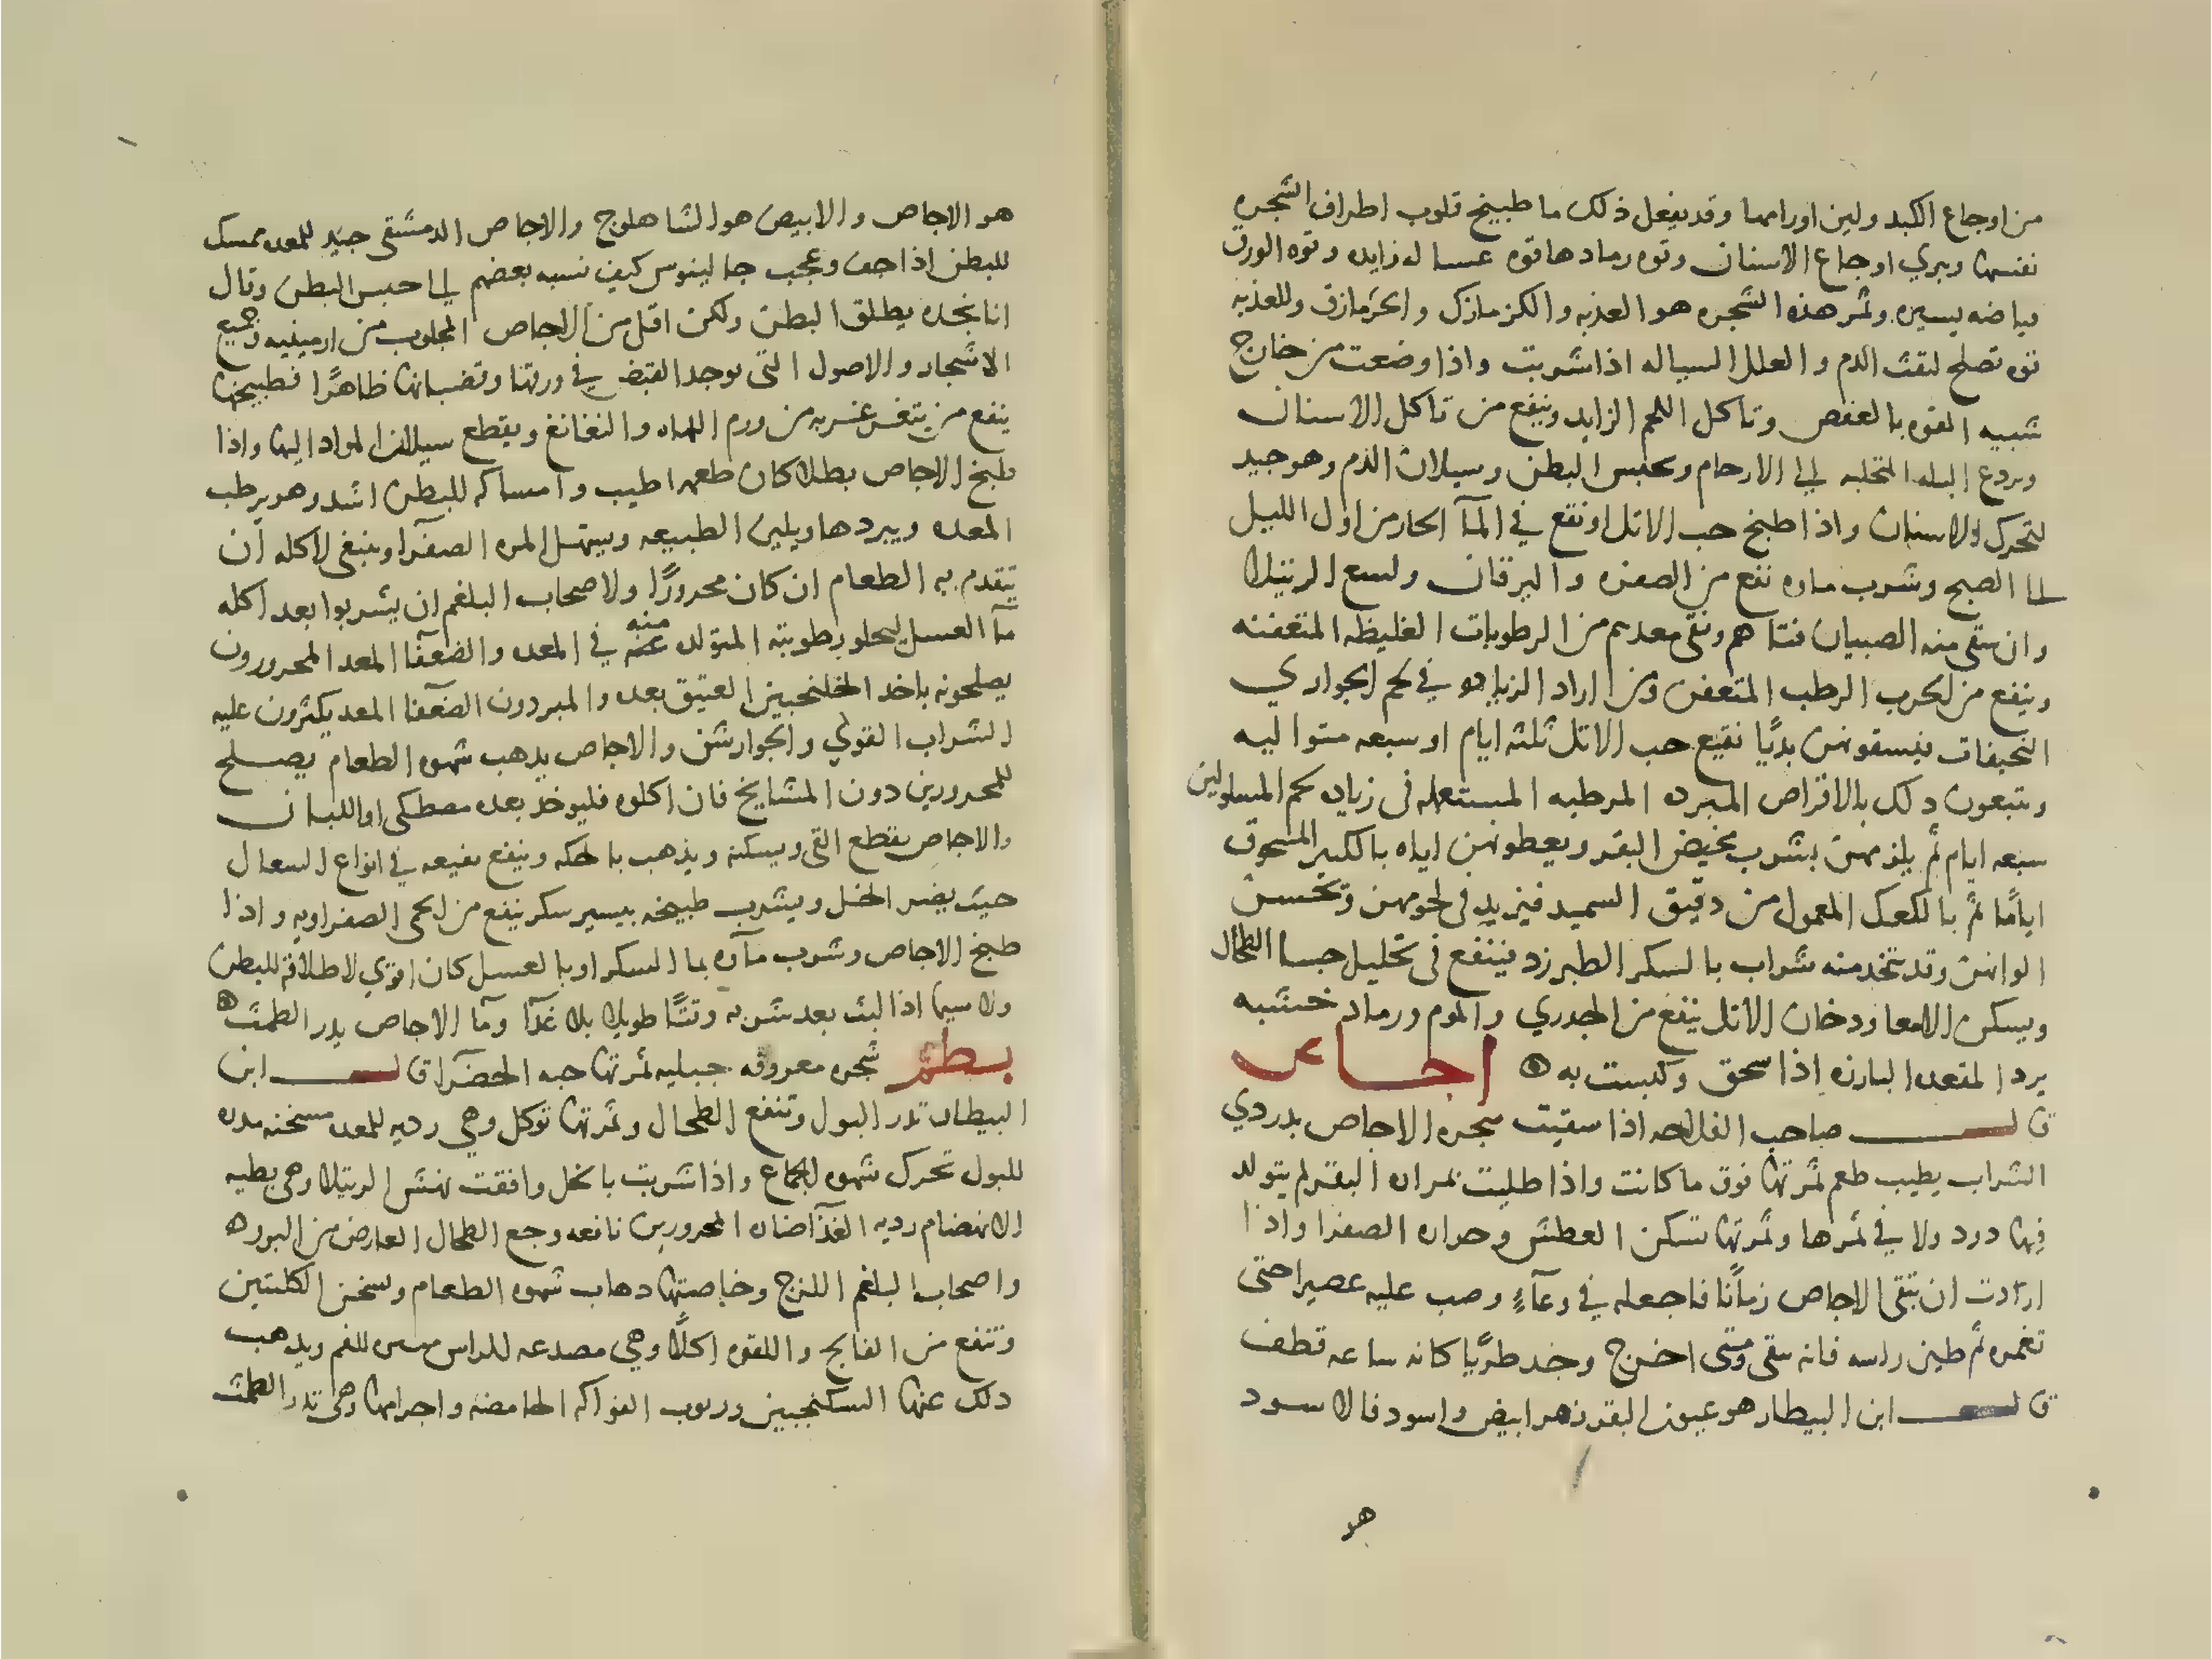 من اوجاع الكبد ولين اورامها وقد يفعل ذلك ما طبيخ قلوب اطراف الشجره
نفسها ويبري اوجاع الاسنان وقوه رمادها قوه عساله زايده وقوه الورق
قباضه يسيره وثمر هذه الشجره هو العذبه والكزمازك والجزمازق وللعذبه
قوه تصلح لنفث الدم والعلل السياله اذا شربت واذا وضعت من خارج
شبيه القوه بالعفص وتاكل اللحم الزايد وينفع من تاكل الاسنان
ويردع البله المتحلبه الى الارحام وتحبس البطن وسيلان الدم وهو جيد
لتحرك الاسنان واذا طبخ حب الاثل او نقع في المآ الحار من اول الليل
الى الصبح وشرب ماوه نفع من الصفره واليرقان ولسع الرتيلا
وان سقي منه الصبيان فتتا هم ونقي معدهم من الرطوبات الغليظه المتعفنه
وينفع من الجرب الرطب المتعفن ومن اراد الزياده في لحم الجواري
النحيفات فيسقونهن بديًا نقيع حب الاثل ثلثه ايام او سبعه متواليه
ويتبعون ذلك بالاقراص المبرده المرطبه المستعمله في زياده لحم المسلولين
سبعه ايام ثم يلزمهن بشرب مخيض البقر ويعطونهن اياه بالكبير المسحوق
ايامًا ثم بالكعك المعمول من دقيق السميد فيزيد في لحومهن وتحسن
الوانهن وقد يتخد منه شراب بالسكر الطبرزد فينفع في تحليل جسا الطحال
ويسكن الامعا ودخان الاثل ينفع من الجدري والموم ورماد خشبه
يرد المقعده البارزه اذا سحق وكبست به اجاص
قال صاحب الفلاحه اذا سقيت شجره الاجاص بدردي
الشراب يطيب طعم ثمرتها فوق ما كانت واذا طليت بمراره البقر لم يتولد
فيها دود ولا في ثمرها وثمرتها تسكن العطش وحراره الصفرا واذا
اردت ان تبقى الاجاص زمانًا فاجعله في وعآءٍ وصب عليه عصيرا حتى
تغمره ثم طين راسه فانه يبقى ومتى اخرج وجد طريًا كانه ساعه قطف
قال ابن البيطار هو عيون البقر زهر ابيض واسود فالاسود
هو
هو الاجاص والابيض هو الشاهلوج والاجاص الدمشقي جيد للمعده ممسك
للبطن اذا جف وعجب جالينوس كيف نسبه بعضهم الى حبس البطن وقال
انا نجده يطلق البطن ولكن اقل من الاجاص المجلوب من ارمينيه وجميع
الاشجار والاصول التي يوجد القبض في ورقها وقضبانها ظاهرًا فطبيخها
ينفع من يتغرغر به من ورم اللهاه والنغانغ ويقطع سيلان المواد اليها واذا
طبخ الاجاص بطلا كان طعمه اطيب وامساكه للبطن اشد وهو يرطب
المعده ويبردها ويلين الطبيعه ويسهل المره الصفرآ وينبغي لاكله ان
يتقدم به الطعام ان كان محرورًا ولاصحاب البلغم ان يشربوا بعد اكله
مآ العسل ليجلو رطوبته المتولده عنه منه في المعده والضعفآ المعد المحرورون
يصلحونه باخد الخلنجبين العتيق بعده والمبردون الضعفآ المعد يكثرون عليه
الشراب القوي والجوارشن والاجاص يذهب شهوه الطعام يصلح
للمحرورين دون المشايخ فان اكلوه فليوخذ بعده مصطكى او اللبان
والاجاص يقطع القي ويسكنه ويذهب بالحكه وينفع نقيعه في انواع السعال
حيث يضر الخل ويشرب طبيخه بيسير سكر ينفع من الحمى الصفراويه واذا
طبخ الاجاص وشرب مآوه بما السكر او بالعسل كان اقوي لاطلاقه للبطن
ولا سيما اذا لبث بعد شربه وقتًا طويلا بلا غدآ ومآ الاجاص يدر الطمث
بطم شجره معروفه جبليه ثمرتها حبه الخضرآ قال ابن
البيطار تدر البول وتنفع الطحال وثمرتها توكل وهي رديه للمعده مسخنه مدره
للبول تحرك شهوه الجماع واذا شربت بالخل وافقت نهش الرتيلا وهي بطيه
الانهضام رديه الغذآ ضاره المحرورين نافعه وجع الطحال العارض من البروده
واصحاب البلغم اللزج وخاصتها دهاب شهوه الطعام وسخن الكليتين
وتنفع من الفالج واللقوه اكلًا وهي مصدعه للراس للفم ويدهب
دلك عنها السكنجبين وربوب الفواكه الحامضه واجرامها وهي تدر الطمث